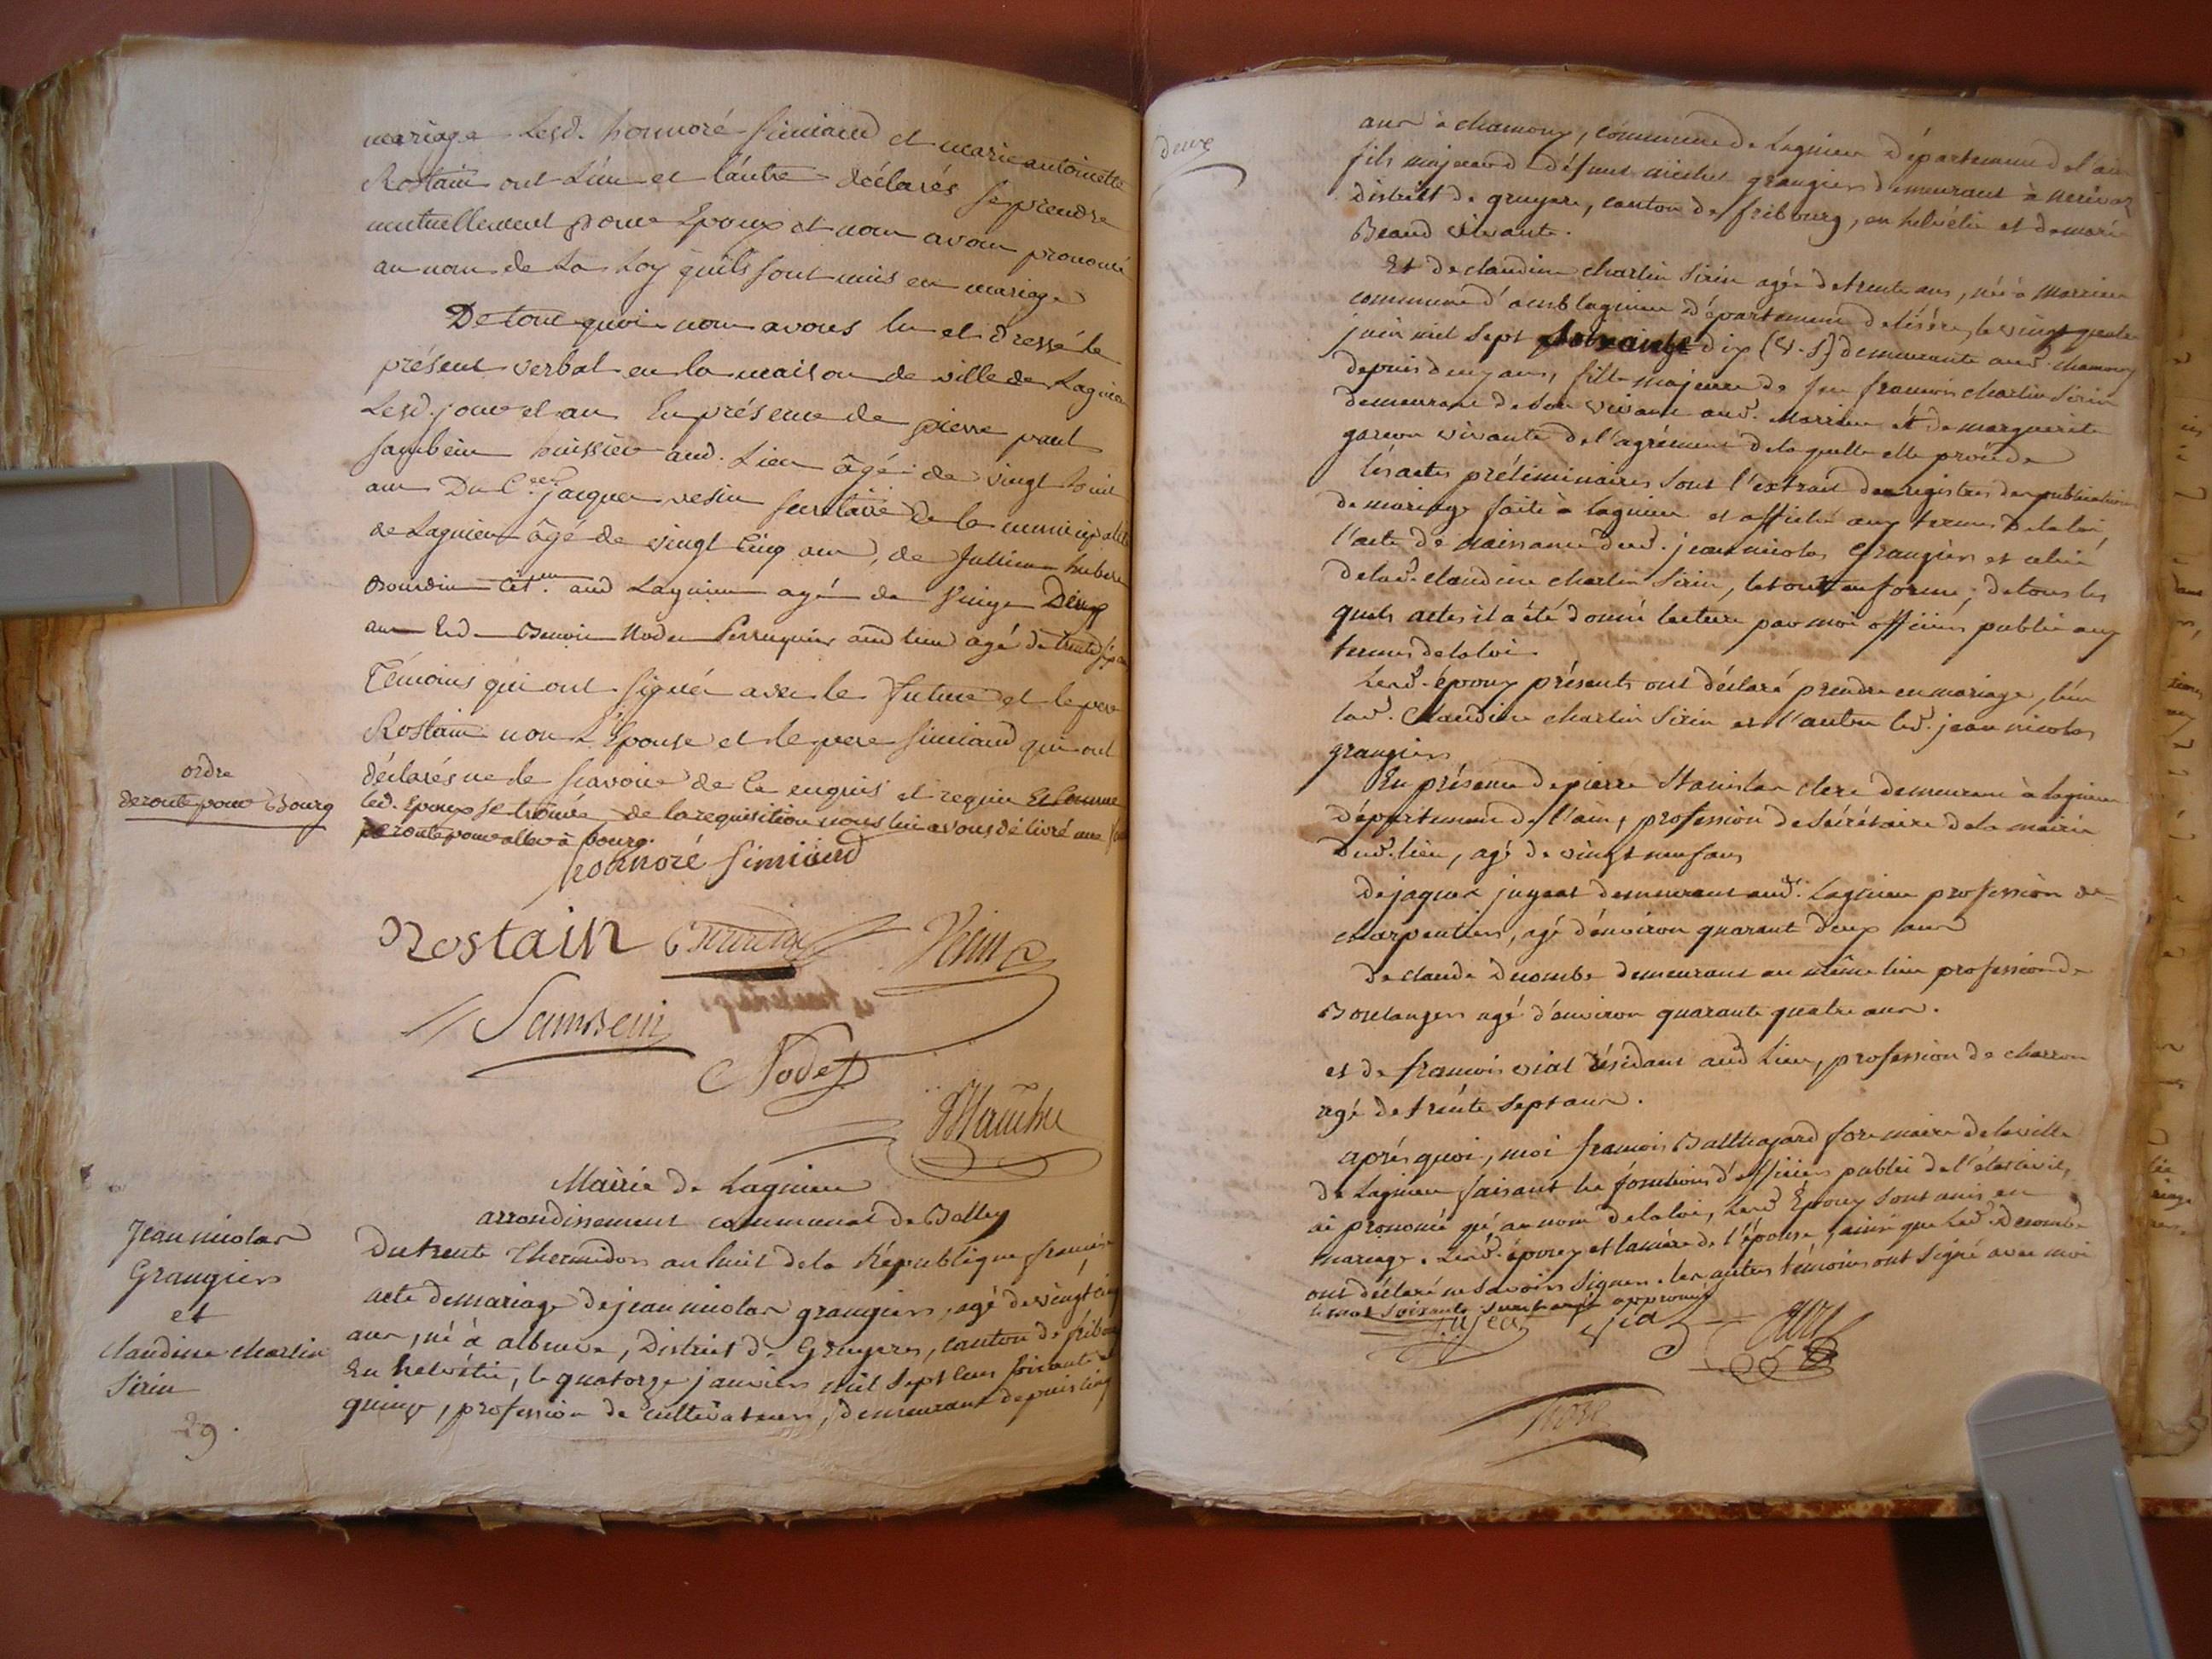 mariage Lesd. honnoré Simiand et marie antoinette
Rostain ont L'un et l'autre déclarés se prendre
mutuellement pour Epoux et nous avons prononcé
au nom de La Loy qu'ils sont unis en mariage
De tout quoi nous avons lu et dressé le
présent verbal en la maison de ville de Lagnieu
Lesd. jour et an En présence de pierre paul
Sambein huissier aud. Lieu âgé de vingt huit
ans Du C.en Jacques vesin secrétaire de la municipalité
de Lagnieu âgé de vingt cinq ans, de Jullien hubert
Bourdin cit.en aud Lagnieu agé de vingt Deux
ans Et de Benoit Nodet Perruquier aud lieu agé de trente six ans
Témoins qui ont signés avec le futur et le pere
Rostain non L'Epouse et le pere Simiand qui ont
déclarés ne le scavoir de ce enquis et requis Et comme
led. Epoux se trouve de la requisition nous lui avons délivré une
de route pour aller à bourg.
ordre
de route pour Bourg
honnoré Simiand
Rostain Vesin
Sambein
Nodet
Mairie de Lagnieu
arrondissement communal de Belley
Jean nicolas
Grangier
et
claudine charlin
Sirin
29.
Du trente Thermidor an huit de la République française
acte de mariage de jean nicolas grangier, agé de vingt cinq
ans, né à albeuve, District de Gruyere, canton de fribourg
En helvétie, le quatorze janvier mil sept cens soixante et
quinze, profession de cultivateur, demeurant depuis cinq
deux
ans à chamoux, commune de Lagnieu département de l'ain
fils majeur de défunt michel grangier demeurant à
district de gruyere, canton de fribourg, en helvétie et de marie
Beaud vivante.
Et de claudine charlin Sirin agée de trente ans, née à Marrieu
commune d'amblagnieu département de l'isère, le vingt quatre
juin mil sept soixante dix (v.s) demeurante aud. chamoux
depuis deux ans, fille majeure de feu françois charlin Sirin
demeurant de son vivant aud. Marrieu et de marguerite
garcon vivante de l'agrément de laquelle elle procéde
les actes préliminaires sont l'extrait des registres des publications
de mariage faite à lagnieu et affiché aux termes de la loi,
l'acte de naissance dud. jean nicolas Grangier et celui
de lad. claudine charlin Sirin, le tout en forme; de tous les
quels actes il a été donné lecture par moi officier public aux
termes de la loi.
Lesd. époux présents ont déclaré prendre en mariage, l'un
lad. Claudine charlin Sirin et l'autre led. jean nicolas
grangier
En présence de pierre Stanislas clerc demeurant à lagnieu
département de l'ain, profession de sécrétaire de la mairie
dud. lieu, agé de vingt neuf ans
de jaques jugeat demeurant aud. Lagnieu profession de
charpentier, agé d'environ quarante deux ans
de claude Decombe demeurant au même lieu profession de
Boulanger agé d'environ quarante quatre ans.
et de françois vial résidant aud Lieu, profession de charron
agé de trente sept ans.
après quoi, moi françois Balthazard fore maire de la ville
de Lagnieu faisant les fonctions d'officier public de l'état civil,
ai prononcé qu'au nom de la loi, lesd Epoux sont unis en
mariage. Lesd. époux et la mère de l'épouse, ainsi que led. Decombe
ont déclaré ne savoir signer. les autres témoins ont signé avec moi
le mot soixante surchargé approuvé
Jujeat vial Clerc
fore